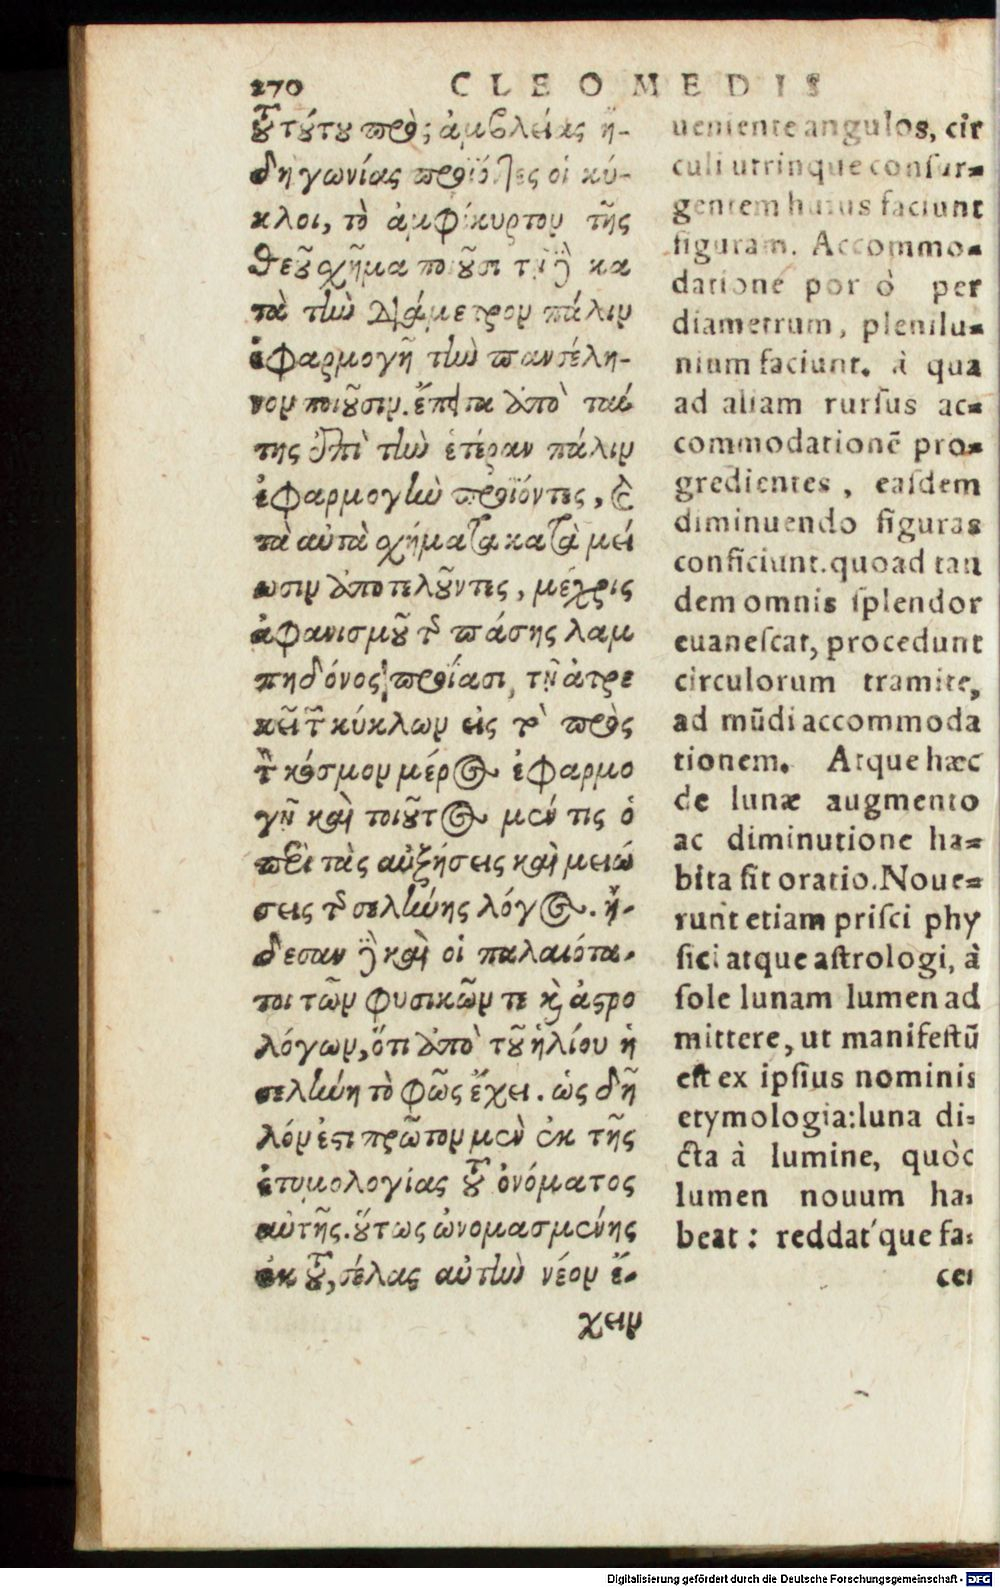 270 CLEOMEDIS
τοῦ τούτου πρὸς ἀμβλείας ἤ-
δη γωνίας προϊόντες οἱ κύ-
κλοι, τὸ ἀμφίκυρτον τῆς
θεοῦ σχῆμα ποιοῦσι τῇ δὲ κα
τὰ τὴν διάμετρον πάλιν
ἐφαρμογῇ τὴν πανσέλη-
νον ποιοῦσιν. ἔπειτα ἀπὸ ταύ
της ἐπὶ τὴν ἑτέραν πάλιν
ἐφαρμογὴν προϊόντες, καὶ
τὰ αὐτὰ σχήματα κατὰ μεί
ωσιν ἀποτελοῦντες, μέχρις
ἀφανισμοῦ τῆς πάσης λαμ
πηδόνος προΐασι, τῇ ἀτρε
κεῖ τῶν κύκλων εἰς τὸ πρὸς
τὸν κόσμον μέρος ἐφαρμο
γῇ καὶ τοιοῦτος μέν τις ὁ
περὶ τὰς αὐξήσεις καὶ μειώ
σεις τῆς σελήνης λόγος. ἤ-
δεσαν δὲ καὶ οἱ παλαιότα-
τοι τῶν φυσικῶν τε καὶ ἀστρο
λόγων, ὅτι ἀπὸ τοῦ ἡλίου ἡ
σελήνη τὸ φῶς ἔχει. ὡς δῆ
λόν ἐστι πρῶτον μὲν ἐκ τῆς
ἐτυμολογίας τοῦ ὀνόματος
αὐτῆς. οὕτως ὠνομασμένης
ἐκ τοῦ, σέλας αὐτὴν νέον ἔ-
χειν
ueniente angulos, cir
culi utrinque consur-
gentem huius faciunt
figuram. Accommo-
datione por ò per
diametrum, plenilu-
nium faciunt. à qua
ad aliam rursus ac-
commodationē pro-
gredientes, easdem
diminuendo figuras
conficiunt. quoad tan
dem omnis splendor
euanescat, procedunt
circulorum tramite,
ad mūdi accommoda
tionem. Atque hæc
de lunæ augmento
ac diminutione ha-
bita sit oratio. Noue-
runt etiam prisci phy
sici atque astrologi, à
sole lunam lumen ad
mittere, ut manifestū
est ex ipsius nominis
etymologia: luna di-
cta à lumine, quòd
lumen nouum ha-
beat: reddat´que fa-
cei
Digitalisierung gefördert durch die Deutsche Forschungsgemeinschaft - DFG